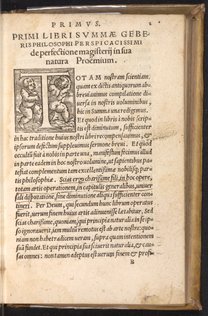 PRIMVS.
PRIMI LIBRI SVMMÆ GEBE-
RIS PHILOSOPHI PERSPICACISSIMI
de perfectione magisterij in sua
natura Proœmium.
TOTAM nostram scientiam,
quam ex dictis antiquorum ab-
breuiauimus compilatione di-
uersa in nostris uoluminibus,
hic in Summa una redigemus.
Et quod in libris à nobis scrip-
tis est diminutum, sufficienter
in hac traditione huius nostri libri recompensauimus, &
ipsorum defectum suppleuimus sermone breui. Et quod
occultū fuit à nobis in parte una, manifestum fecimus illud
in parte eadem in hoc nostro uolumine, ut sapientibus pa-
teat completio tam excellentissimæ & nobilissimæ, par-
tis philosophiæ. Scias ergo charissime fili, in hoc opere,
totam artis operationem, in capitulis generalibus, uniuer
sali disputatione, sine diminutione aliqua sufficienter con-
tineri. Per Deum, qui secundum hunc librum operatus
fuerit, uerum finem huius artis adinuenisse lætabitur. Sed
scias charissime, quoniam, qui principia naturalia in seip-
so ignorauerit, iam multum remotus est ab arte nostra: quo-
niam non habet
sit. Et qui principia sua sciuerit naturalia, & cau-
sas omnes: non tamen adeptus est uerum finem & profi-
B